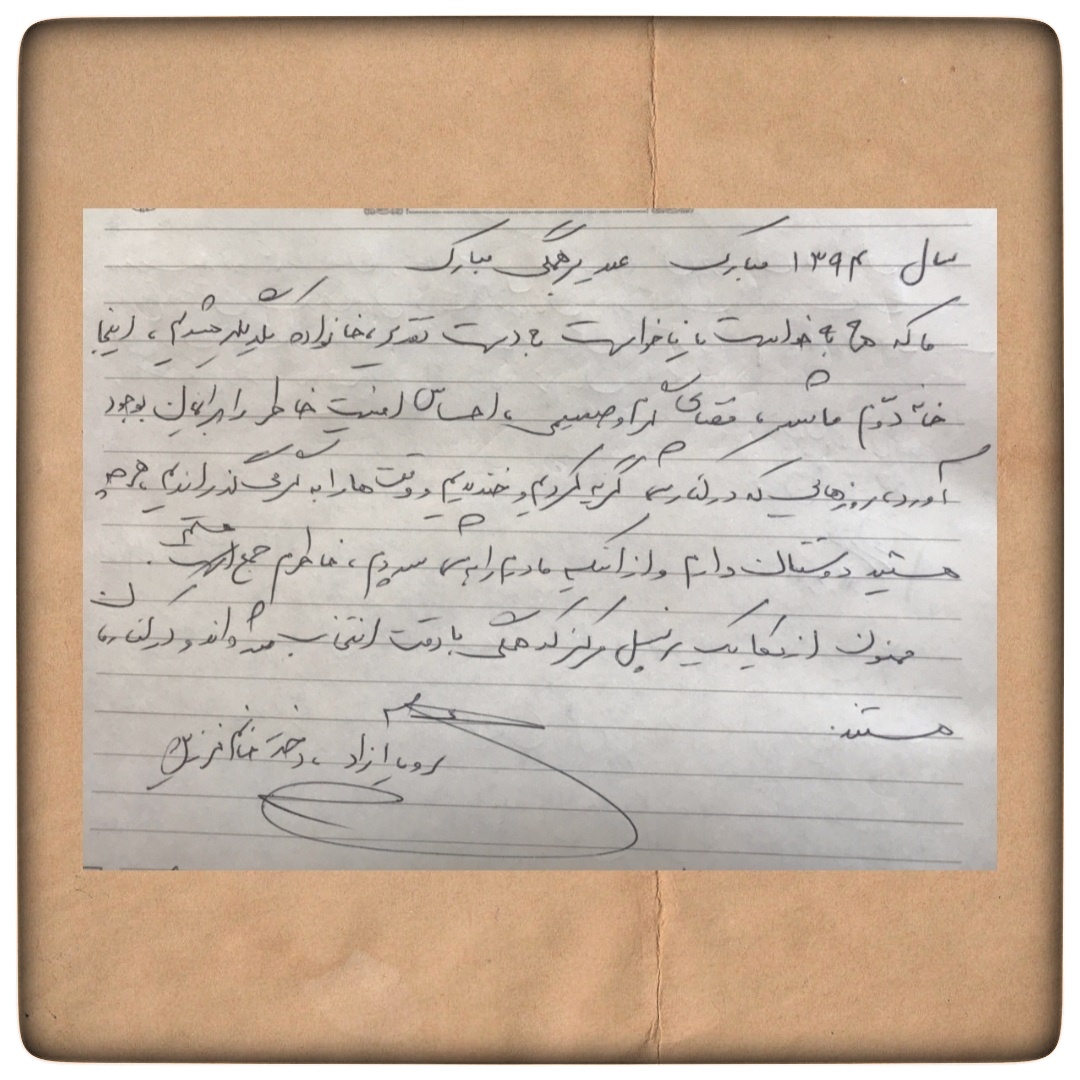 سال ۱۳۹۴ مبارک عید برهمگی مبارک
ما که هم به خواست یا ناخواست به دست تقدیر، خانواده یکدیگر شدیم، اینجا
خانه دوّم ما شد، فضای گرم و صمیمی، احساس امنیت خاطر را برایمان بوجود
آورد، روزهائی که در کنار شما گریه کردیم و خندیدیم و وقت‌ها را به گذراندیم هرچه
هستید دوستتان دارم و از اینکه مادرم را به شما سپردم، خاطرم جمع است
ممنون از یکایک پرسنل مرکز که همگی با دقت انتخاب شده‌اند و در کنارمان
هستند.
رویا آزاد، دختر خانم